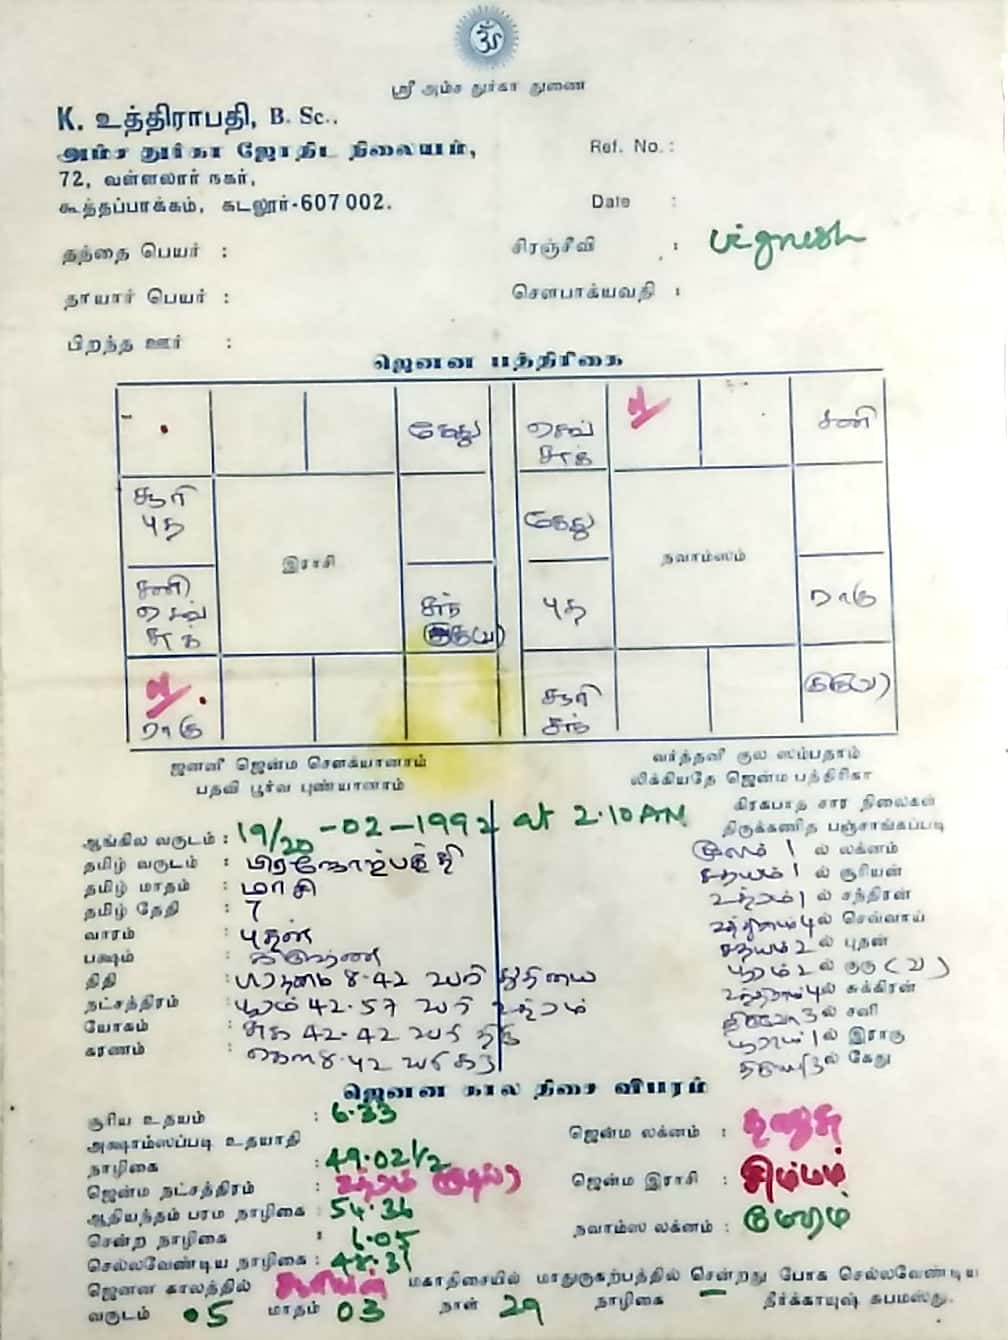 ஸ்ரீ அம்ச துர்கா துணை
K. உத்திராபதி, B. Sc.,
அம்ச துர்கா ஜோதிட நிலையம்,
72, வள்ளலார் நகர்,
கூத்தப்பாக்கம், கடலூர்-607 002.
Ref. No. :
Date :
தந்தை பெயர் :
சிரஞ்சீவி : Vignesh
தாயார் பெயர் :
சௌபாக்யவதி :
பிறந்த ஊர் :
ஜெனன பத்திரிகை
கேது
சூரி
புத
இராசி
சனி
செவ்
சுக்
சந்
குரு(வ)
ல
ராகு
செவ்
சுக்
ல
சனி
கேது
நவாம்ஸம்
புத
ராகு
சூரி
சந்
குரு(வ)
ஜனனீ ஜென்ம சௌக்யானாம்
பதவி பூர்வ புண்யானாம்
வர்த்தனீ குல ஸம்பதாம்
லிக்கியதே ஜென்ம பத்திரிகா
ஆங்கில வருடம் : 19/20-02-1992 at 2.10 AM
தமிழ் வருடம் : பிரஜோற்பத்தி
தமிழ் மாதம் : மாசி
தமிழ் தேதி : 7
வாரம் : புதன்
பக்ஷம் :
திதி : 8.42 வரி துதியை
நட்சத்திரம் : பூரம் 42.57 வரி உத்ரம்
யோகம் : சுக 42.42 வரி
கரணம் : 8.42 வரி
கிரகபாத சார நிலைகள்
திருக்கணித பஞ்சாங்கப்படி
மூலம் 1 ல் லக்னம்
சதயம் 1 ல் சூரியன்
உத்ரம் 1 ல் சந்திரன்
4ல் செவ்வாய்
சதயம் 2 ல் புதன்
பூரம் 2 ல் குரு (வ)
4ல் சுக்கிரன்
3ல் சனி
பூராடம் 1ல் இராகு
ல் கேது
ஜெனன கால திசை விபரம்
சூரிய உதயம் : 6.33
அக்ஷாம்ஸப்படி உதயாதி
நாழிகை : 49.02 1/2
ஜென்ம நட்சத்திரம் : உத்ரம்
ஆதியந்தம் பரம நாழிகை : 54.36
சென்ற நாழிகை : 6.05
செல்லவேண்டிய நாழிகை : 48.31
ஜென்ம லக்னம் : தனுசு
ஜென்ம இராசி : சிம்மம்
நவாம்ஸ லக்னம் : மேஷம்
ஜெனன காலத்தில் சூரியன் மகாதிசையில் மாதுருகற்பத்தில் சென்றது போக செல்லவேண்டிய
வருடம் 05 மாதம் 03 நாள் 29 நாழிகை - தீர்க்காயுஷ் சுபமஸ்து.